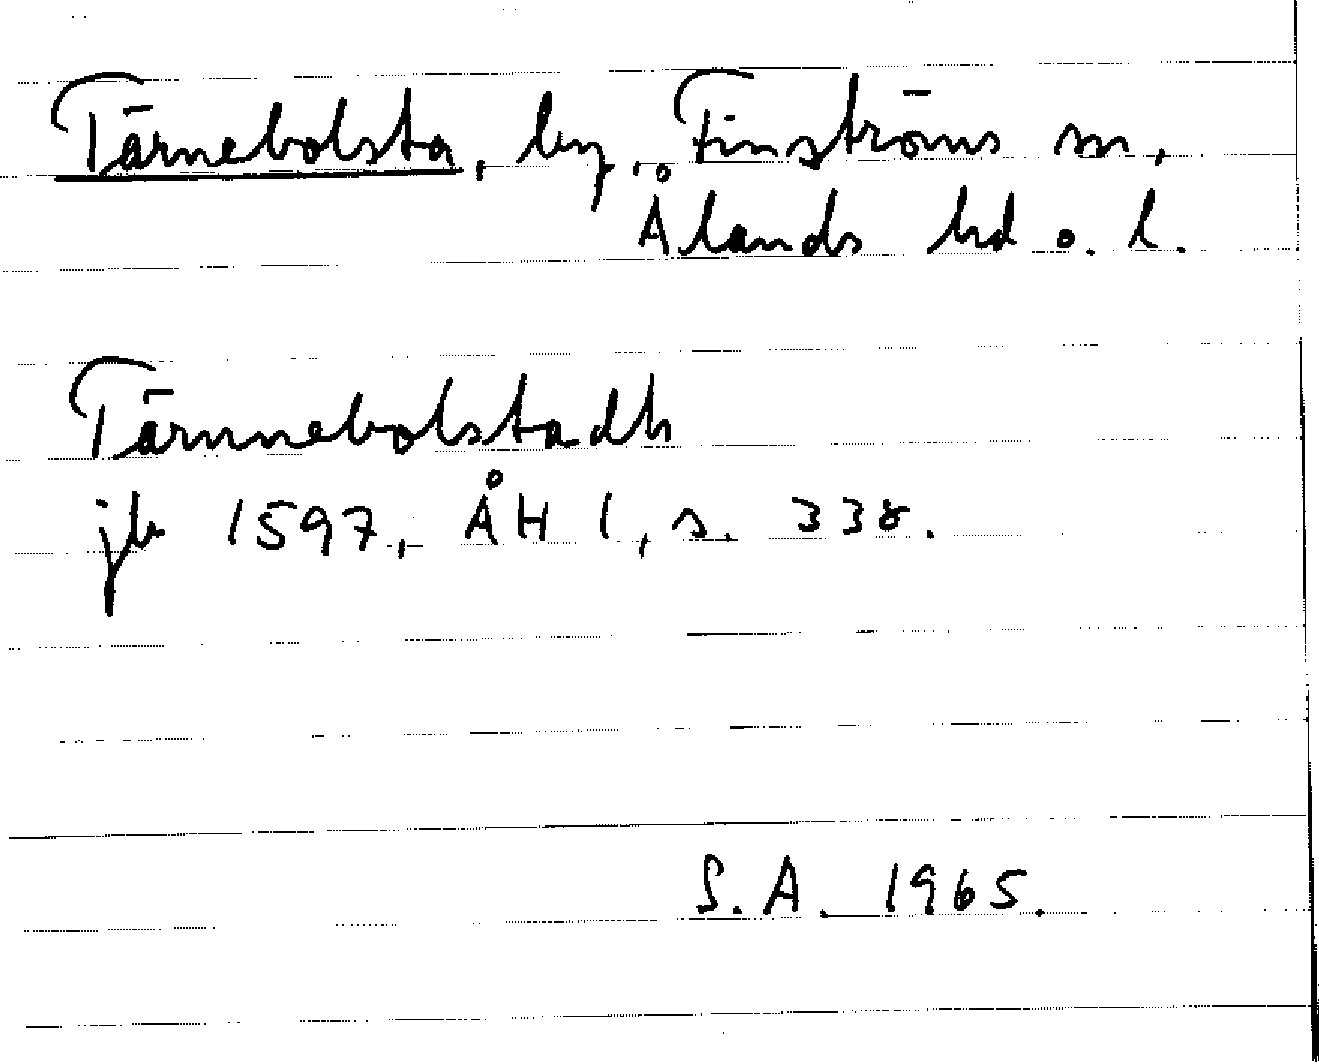 Tärnebolsta, by, Finströms sn,
Ålands hd o. l.
Tärnnebolstadh
jb 1597, ÅH 1, s. 338.
S.A. 1965.